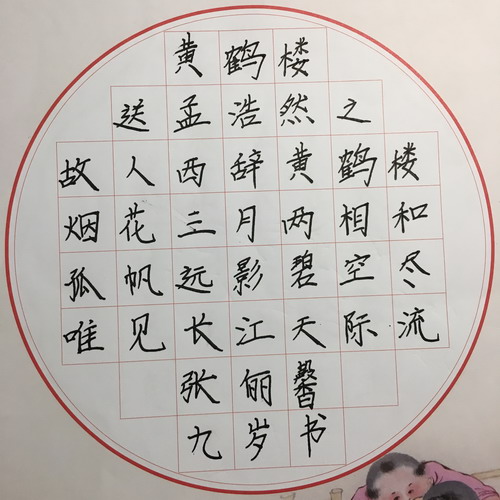 黄鹤楼
送孟浩然之
故人西辞黄鹤楼
烟花三月两相和
孤帆远影碧空尽
唯见长江天际流
张俪馨
九岁书